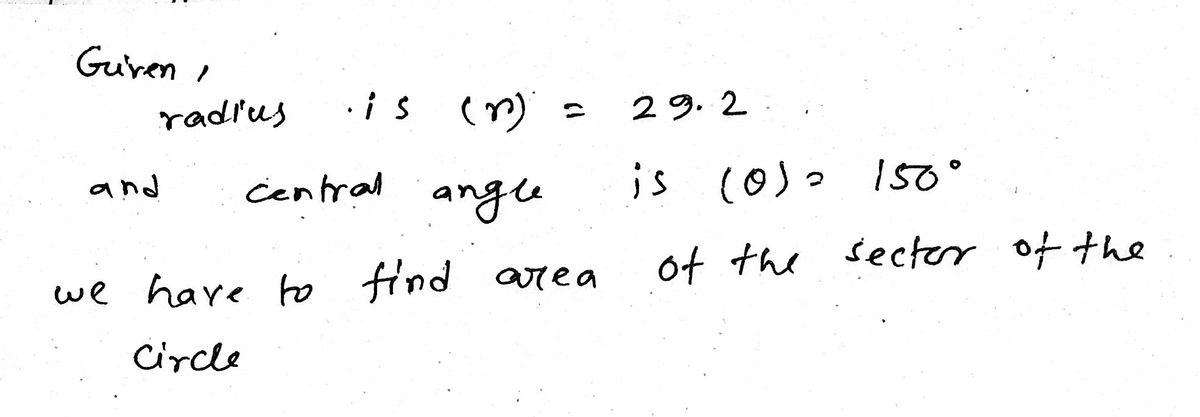 Given,
radius is (r) = 29.2
and central angle is (θ) = 150°
we have to find area of the sector of the
circle